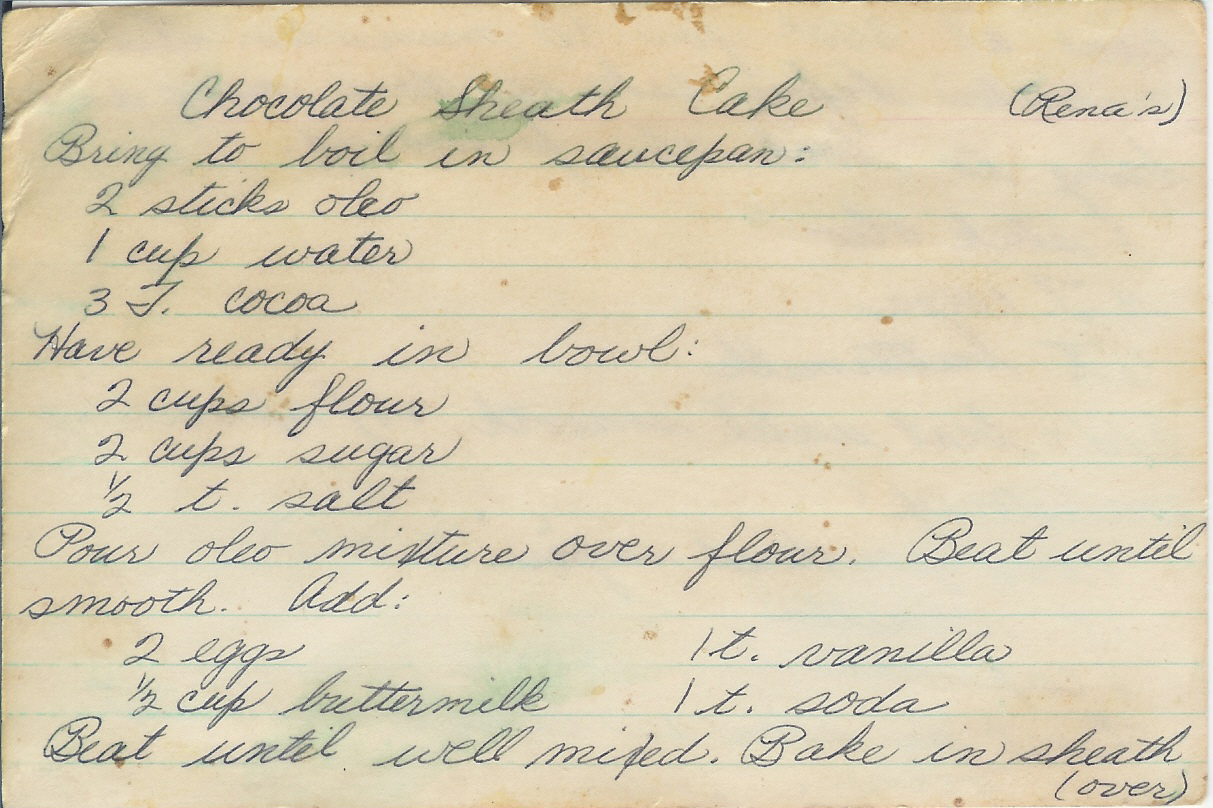 Chocolate Sheath Cake (Rena's)
Bring to boil in saucepan:
2 sticks oleo
1 cup water
3 T. cocoa
Have ready in bowl:
2 cups flour
2 cups sugar
1/2 t. salt
Pour oleo mixture over flour. Beat until
smooth. Add:
2 eggs 1 t. vanilla
1/2 cup buttermilk 1 t. soda
Beat until well mixed. Bake in sheath
(over)